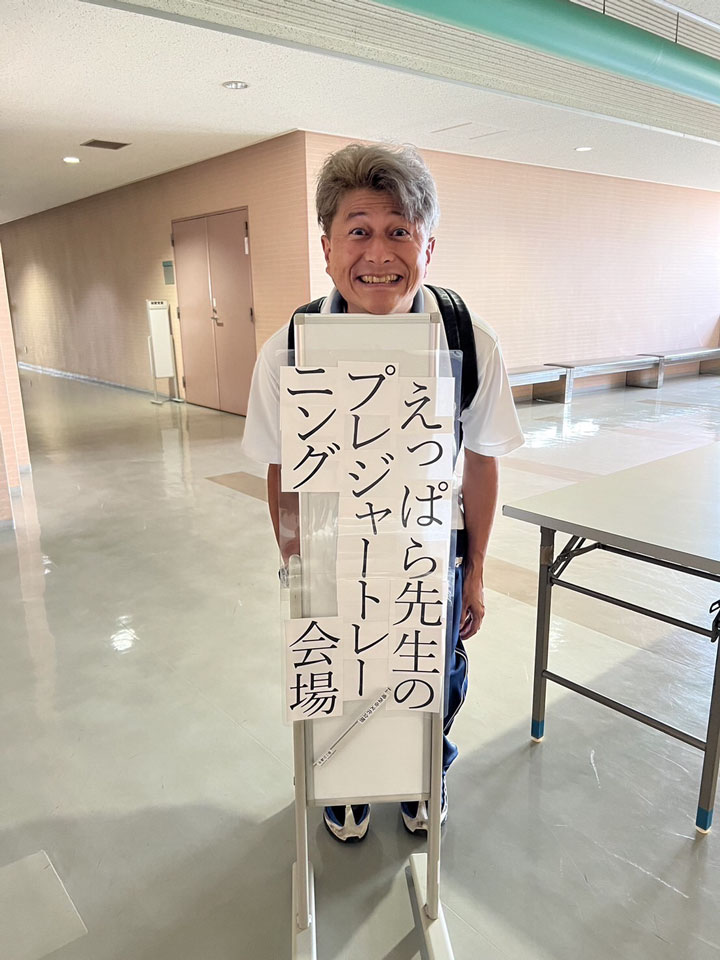 えっぱら先生の
プレジャートレー
ニング
会場